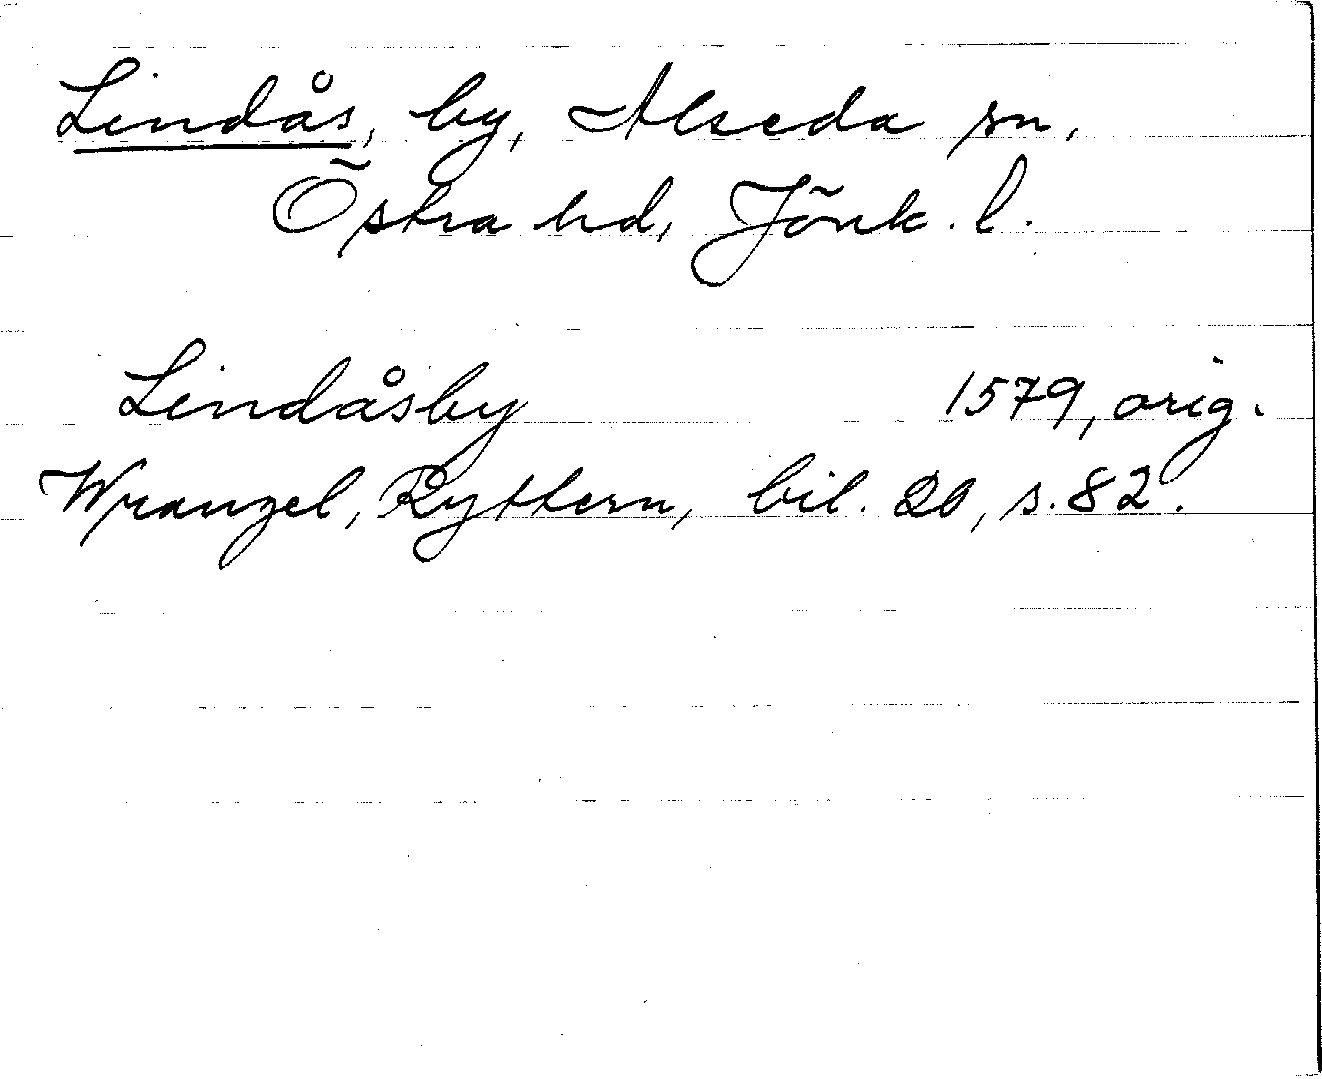 Lindås, by, Alseda sn,
Östra hd, Jönk. l.
Lindåsby 1579, orig.
Wrangel, Ryttern, bil. 20, s. 82.